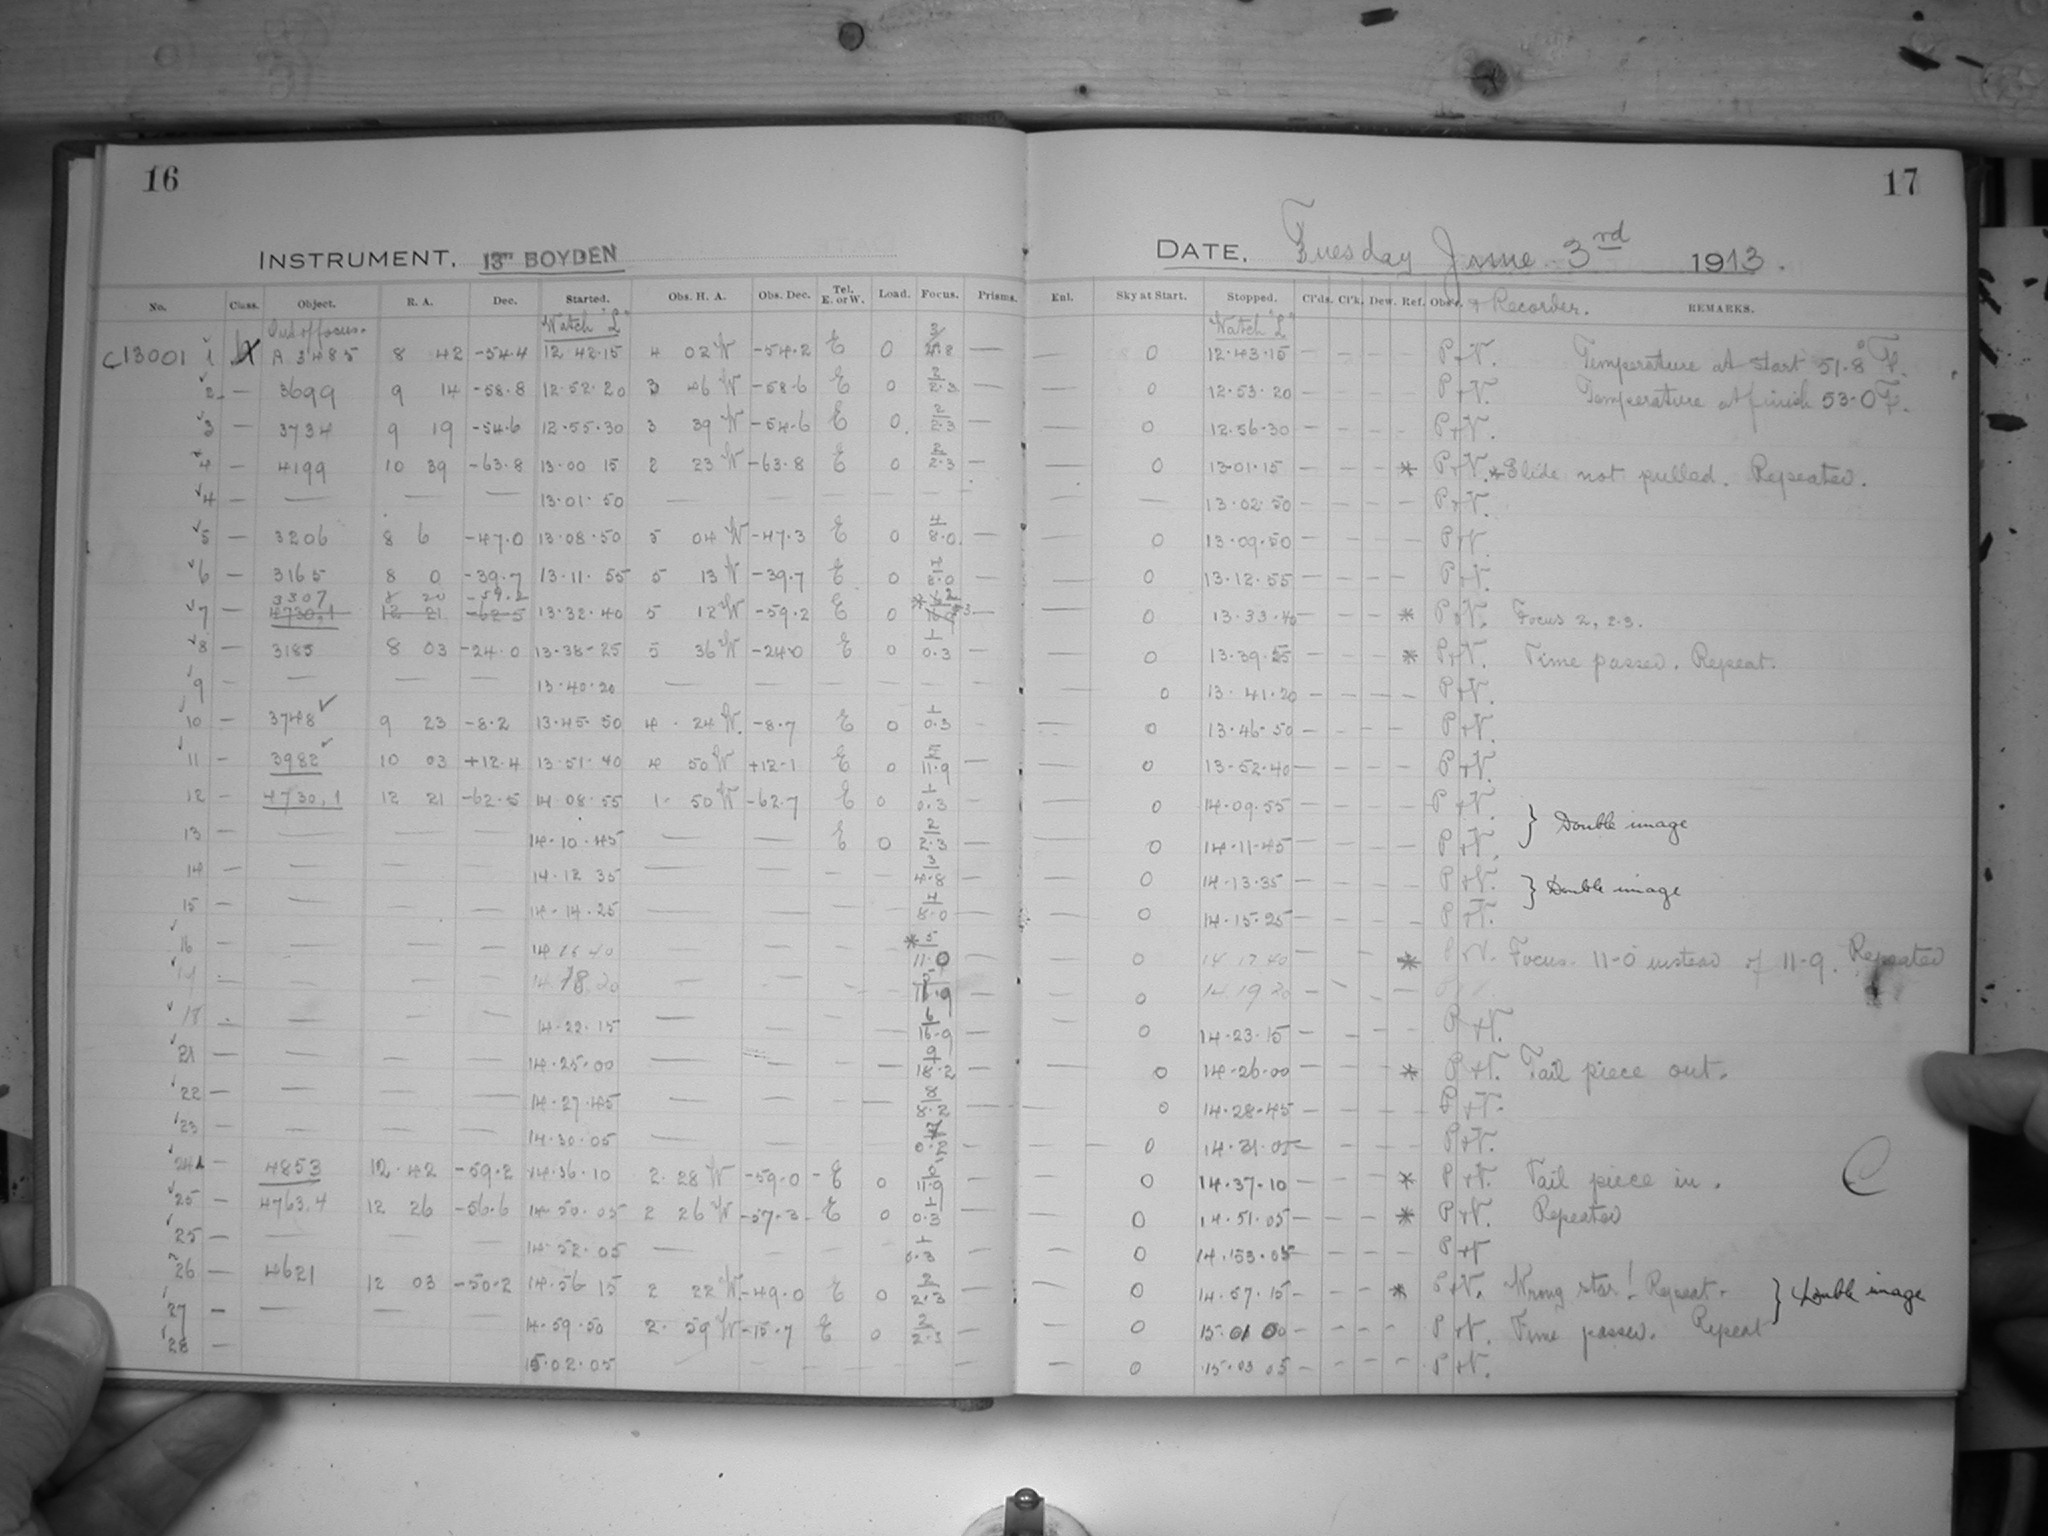 16
17
INSTRUMENT. 13in BOYDEN
DATE. Tuesday June 3rd 1913.
No. Class. Object. R. A. Dec. Started. Obs. H. A. Obs. Dec. Tel. E. or W. Load. Focus. Prisms. Enl. Sky at Start. Stopped. Cl'ds. Cl'k. Dew. Ref. Obs'r. & Recorder. REMARKS.
Out of focus. Watch "L" Watch "L"
C13001 1 A 3485 8 42 -54.4 12 42.15 4 02 W -54.2 E 0 — 0 12.43.15 P+V. Temperature at start 51.8° F.
2 — 3699 9 14 -58.8 12.52.20 3 46 W -58.6 E 0 2/2.3 — — 0 12.53.20 — — — — P+V. Temperature at finish 53.0 F.
3 — 3734 9 19 -54.6 12.55.30 3 39 W -54.6 E 0 2/2.3 — — 0 12.56.30 — — — — P+V.
4 — 4199 10 39 -63.8 13.00 15 2 23 W -63.8 E 0 2/2.3 — — 0 13.01.15 — — — * P+V. * Slide not pulled. Repeated.
4 — — — — 13.01.50 — — — — — — — — 13.02.50 — — — — P+V.
5 — 3206 8 6 -47.0 13.08.50 5 04 W -47.3 E 0 4/8.0 — — 0 13.09.50 — — — — P+V.
6 — 3165 8 0 -39.7 13.11.55 5 13 W -39.7 E 0 8.0 — — 0 13.12.55 — — — — P+V.
3307 8 20 -59.2
7 — 4730.1 12 21 -62.5 13.32.40 5 12 W -59.2 E 0 * — — 0 13.33.40 — — — * P+V. Focus 2, 2.3.
8 — 3185 8 03 -24.0 13.38.25 5 36 W -24.0 E 0 1/0.3 — — 0 13.39.25 — — — * P+V. Time passed. Repeat.
9 — — — — 13.40.20 — — — — — — — — 0 13.41.20 — — — — P+V.
10 — 3748 ✓ 9 23 -8.2 13.45.50 4 24 W. -8.7 E 0 1/0.3 — — 0 13.46.50 — — — — P+V.
11 — 3982 ✓ 10 03 +12.4 13.51.40 4 50 W +12.1 E 0 11.9 — — 0 13.52.40 — — — — P+V.
12 — 4730.1 12 21 -62.5 14 08.55 1 50 W -62.7 E 0 1/0.3 — — 0 14.09.55 — — — — P+V.
} Double image
13 — — — — 14.10.45 — — E 0 2/2.3 — — 0 14.11.45 — — — — P+V.
14 — — — — 14.12 35 — — — — 3/4.8 — — 0 14.13.35 — — — — P+V.
} Double image
15 — — — — 14.14.25 — — — — 8.0 — — 0 14.15.25 — — — — P+V.
16 — — — — — — — — * 5/11.0 — 0 14 17 40 * P+V. Focus 11-0 instead of 11-9. Repeated
— — — 14.18.20 — — — — 11.9 — — 0 14 19 20 — — — —
18 — — — — 14.22.15 — — — — 6/16.9 — — 0 14.23.15 — — — — P+V.
21 — — — — 14.25.00 — — — — 18.2 — — 0 14.26.00 — — — * P+V. Tail piece out.
22 — — — — 14.27.45 — — — — 8/8.2 — — 0 14.28.45 — — — — P+V.
23 — — — — 14.30.05 — — — — — — 0 14.31.05 — — — — P+V.
24 — 4853 12.42 -59.2 14.36.10 2.28 W -59.0 E 0 11.9 — — 0 14.37.10 — — — * P+V. Tail piece in. C
25 — 4763.4 12 26 -56.6 14.50.05 2 26 W -57.3 E 0 1/0.3 — — 0 14.51.05 — — — * P+V. Repeated
25 — — — — 14.52.05 — — — — 1/0.3 — — 0 14.53.05 — — — — P+V
26 — 4621 12 03 -50.2 14.56 15 2 22 W. -49.0 E 0 2/2.3 — — 0 14.57.15 — — — * P+V. Wrong star! Repeat.
} Double image
27 — — — — 14.59.50 2. 59 W -15.7 E 0 2/2.3 — — 0 15.01 00 — — — — P+V. Time passed. Repeat
28 — 15.02.05 — — — — — — 0 15.03 05 — — — — P+V.